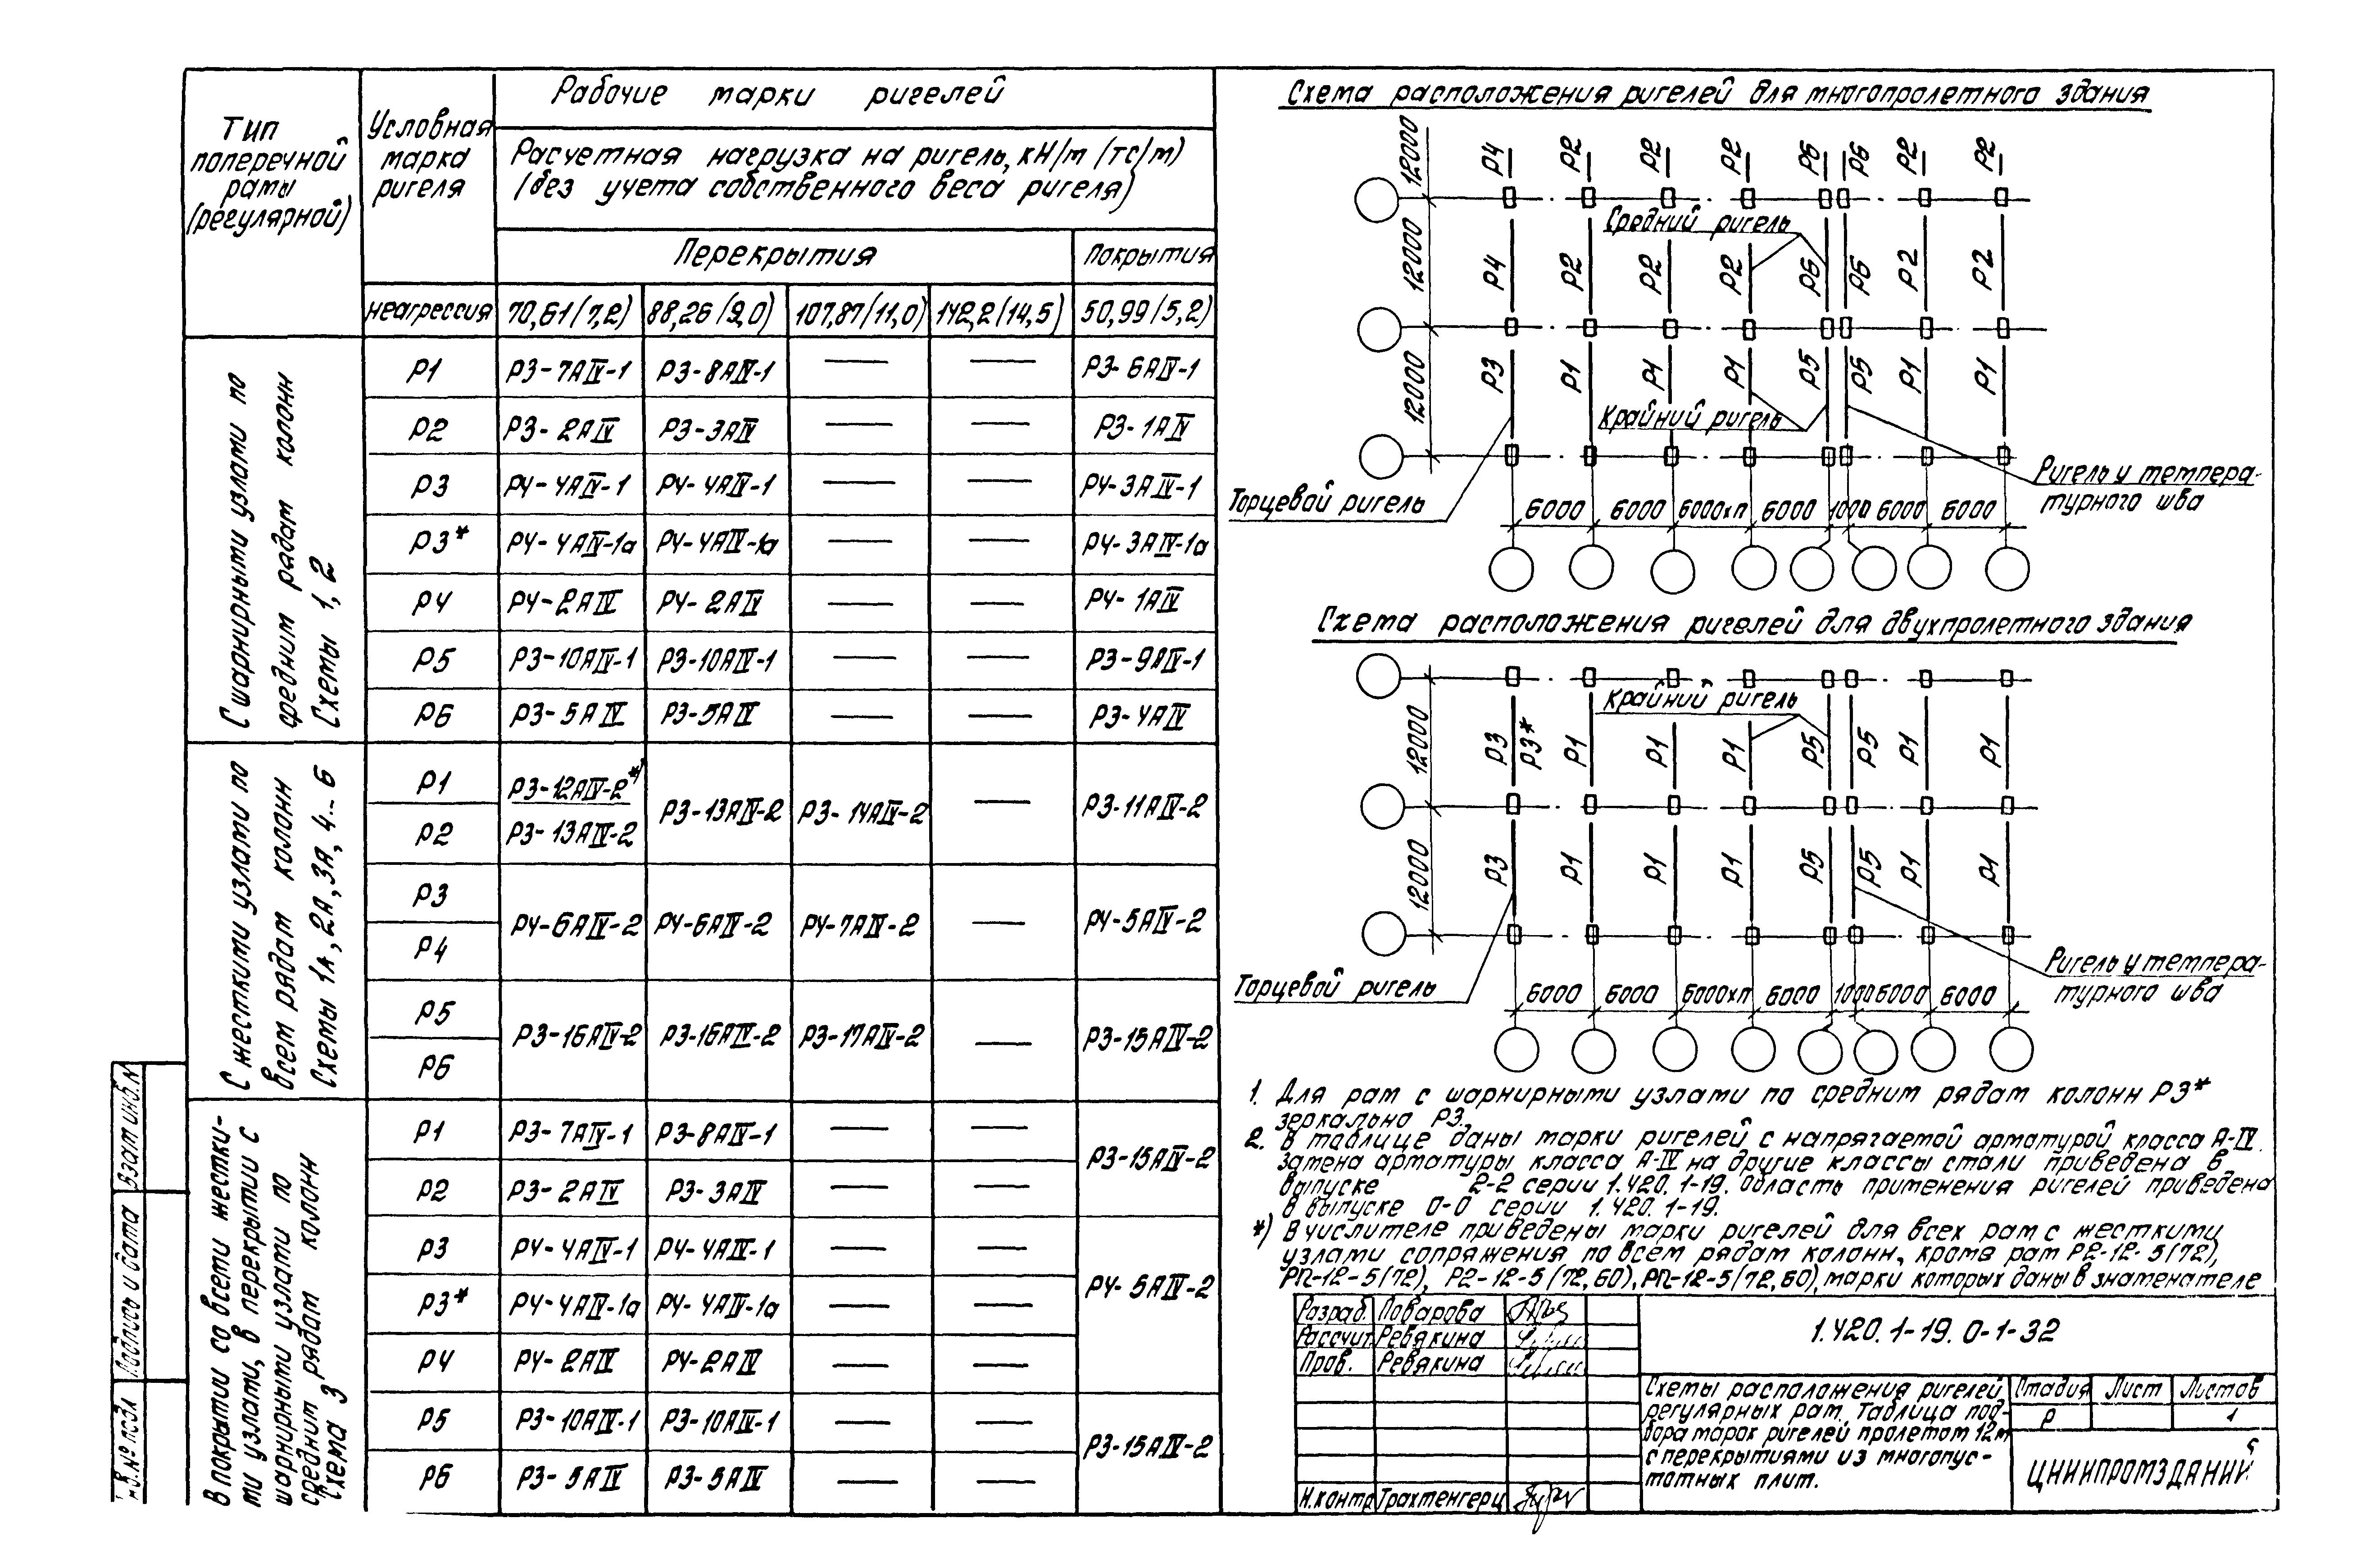 Тип
поперечной
рамы
(регулярной)
Условная
марка
ригеля
Рабочие марки ригелей
Расчетная нагрузка на ригель, кН/м (тс/м)
(без учета собственного веса ригеля)
Перекрытия Покрытия
неагрессия 70,61(7,2) 88,26(9,0) 107,87(11,0) 142,2(14,5) 50,99(5,2)
С шарнирными узлами по
средним рядам колонн
Схемы 1, 2
Р1 Р3-7АIV-1 Р3-8АIV-1 — — Р3-6АIV-1
Р2 Р3-2АIV Р3-3АIV — — Р3-1АIV
Р3 Р4-4АIV-1 Р4-4АIV-1 — — Р4-3АIV-1
Р3* Р4-4АIV-1а Р4-4АIV-1а — — Р4-3АIV-1а
Р4 Р4-2АIV Р4-2АIV — — Р4-1АIV
Р5 Р3-10АIV-1 Р3-10АIV-1 — — Р3-9АIV-1
Р6 Р3-5АIV Р3-5АIV — — Р3-4АIV
С жесткими узлами по
всем рядам колонн
Схемы 1А, 2А, 3А, 4...6
Р1 Р3-12АIV-2*)
Р2 Р3-13АIV-2
Р3-13АIV-2 Р3-14АIV-2 — Р3-11АIV-2
Р3
Р4
Р4-6АIV-2 Р4-6АIV-2 Р4-7АIV-2 — Р4-5АIV-2
Р5
Р6
Р3-16АIV-2 Р3-16АIV-2 Р3-17АIV-2 — Р3-15АIV-2
В покрытии со всеми жестки-
ми узлами, в перекрытии с
шарнирными узлами по
средним рядам колонн
Схема 3
Р1 Р3-7АIV-1 Р3-8АIV-1 — —
Р2 Р3-2АIV Р3-3АIV — —
Р3-15АIV-2
Р3 Р4-4АIV-1 Р4-4АIV-1 — —
Р3* Р4-4АIV-1а Р4-4АIV-1а — —
Р4 Р4-2АIV Р4-2АIV — —
Р4-5АIV-2
Р5 Р3-10АIV-1 Р3-10АIV-1 — —
Р6 Р3-5АIV Р3-5АIV — —
Р3-15АIV-2
Взам инв.N
Подпись и дата
Инв.№ подл
Схема расположения ригелей для многопролетного здания
12000 Р4 Р2 Р2 Р2 Р6 Р6 Р2 Р2
Средний ригель
12000 Р4 Р2 Р2 Р2 Р6 Р6 Р2 Р2
12000 Р3 Р1 Р1 Р1 Р5 Р5 Р1 Р1
Крайний ригель
Торцевой ригель
Ригель у темпера-
турного шва
6000 6000 6000хп 6000 1000 6000 6000
Схема расположения ригелей для двухпролетного здания
Крайний ригель
12000 Р3 Р3* Р1 Р1 Р1 Р5 Р5 Р1 Р1
12000 Р3 Р1 Р1 Р1 Р5 Р5 Р1 Р1
Торцевой ригель
Ригель у темпера-
турного шва
6000 6000 6000хп 6000 1000 6000 6000
1. Для рам с шарнирными узлами по средним рядам колонн Р3*
зеркально Р3.
2. В таблице даны марки ригелей с напрягаемой арматурой класса А-IV.
Замена арматуры класса А-IV на другие классы стали приведена в
выпуске 2-2 серии 1.420.1-19. Область применения ригелей приведена
в выпуске 0-0 серии 1.420.1-19.
*) В числителе приведены марки ригелей для всех рам с жесткими
узлами сопряжения по всем рядам колонн, кроме рам Р2-12-5(72),
РП-12-5(72), Р2-12-5(72,60), РП-12-5(72,60), марки которых даны в знаменателе
Разраб. Поварова
Рассчит. Ревякина
Пров. Ревякина
Н.контр Трахтенгерц
1.420.1-19.0-1-32
Схемы расположения ригелей
регулярных рам. Таблица под-
бора марок ригелей пролетом 12м
с перекрытиями из многопус-
тотных плит.
Стадия Лист Листов
Р 1
ЦНИИПРОМЗДАНИЙ